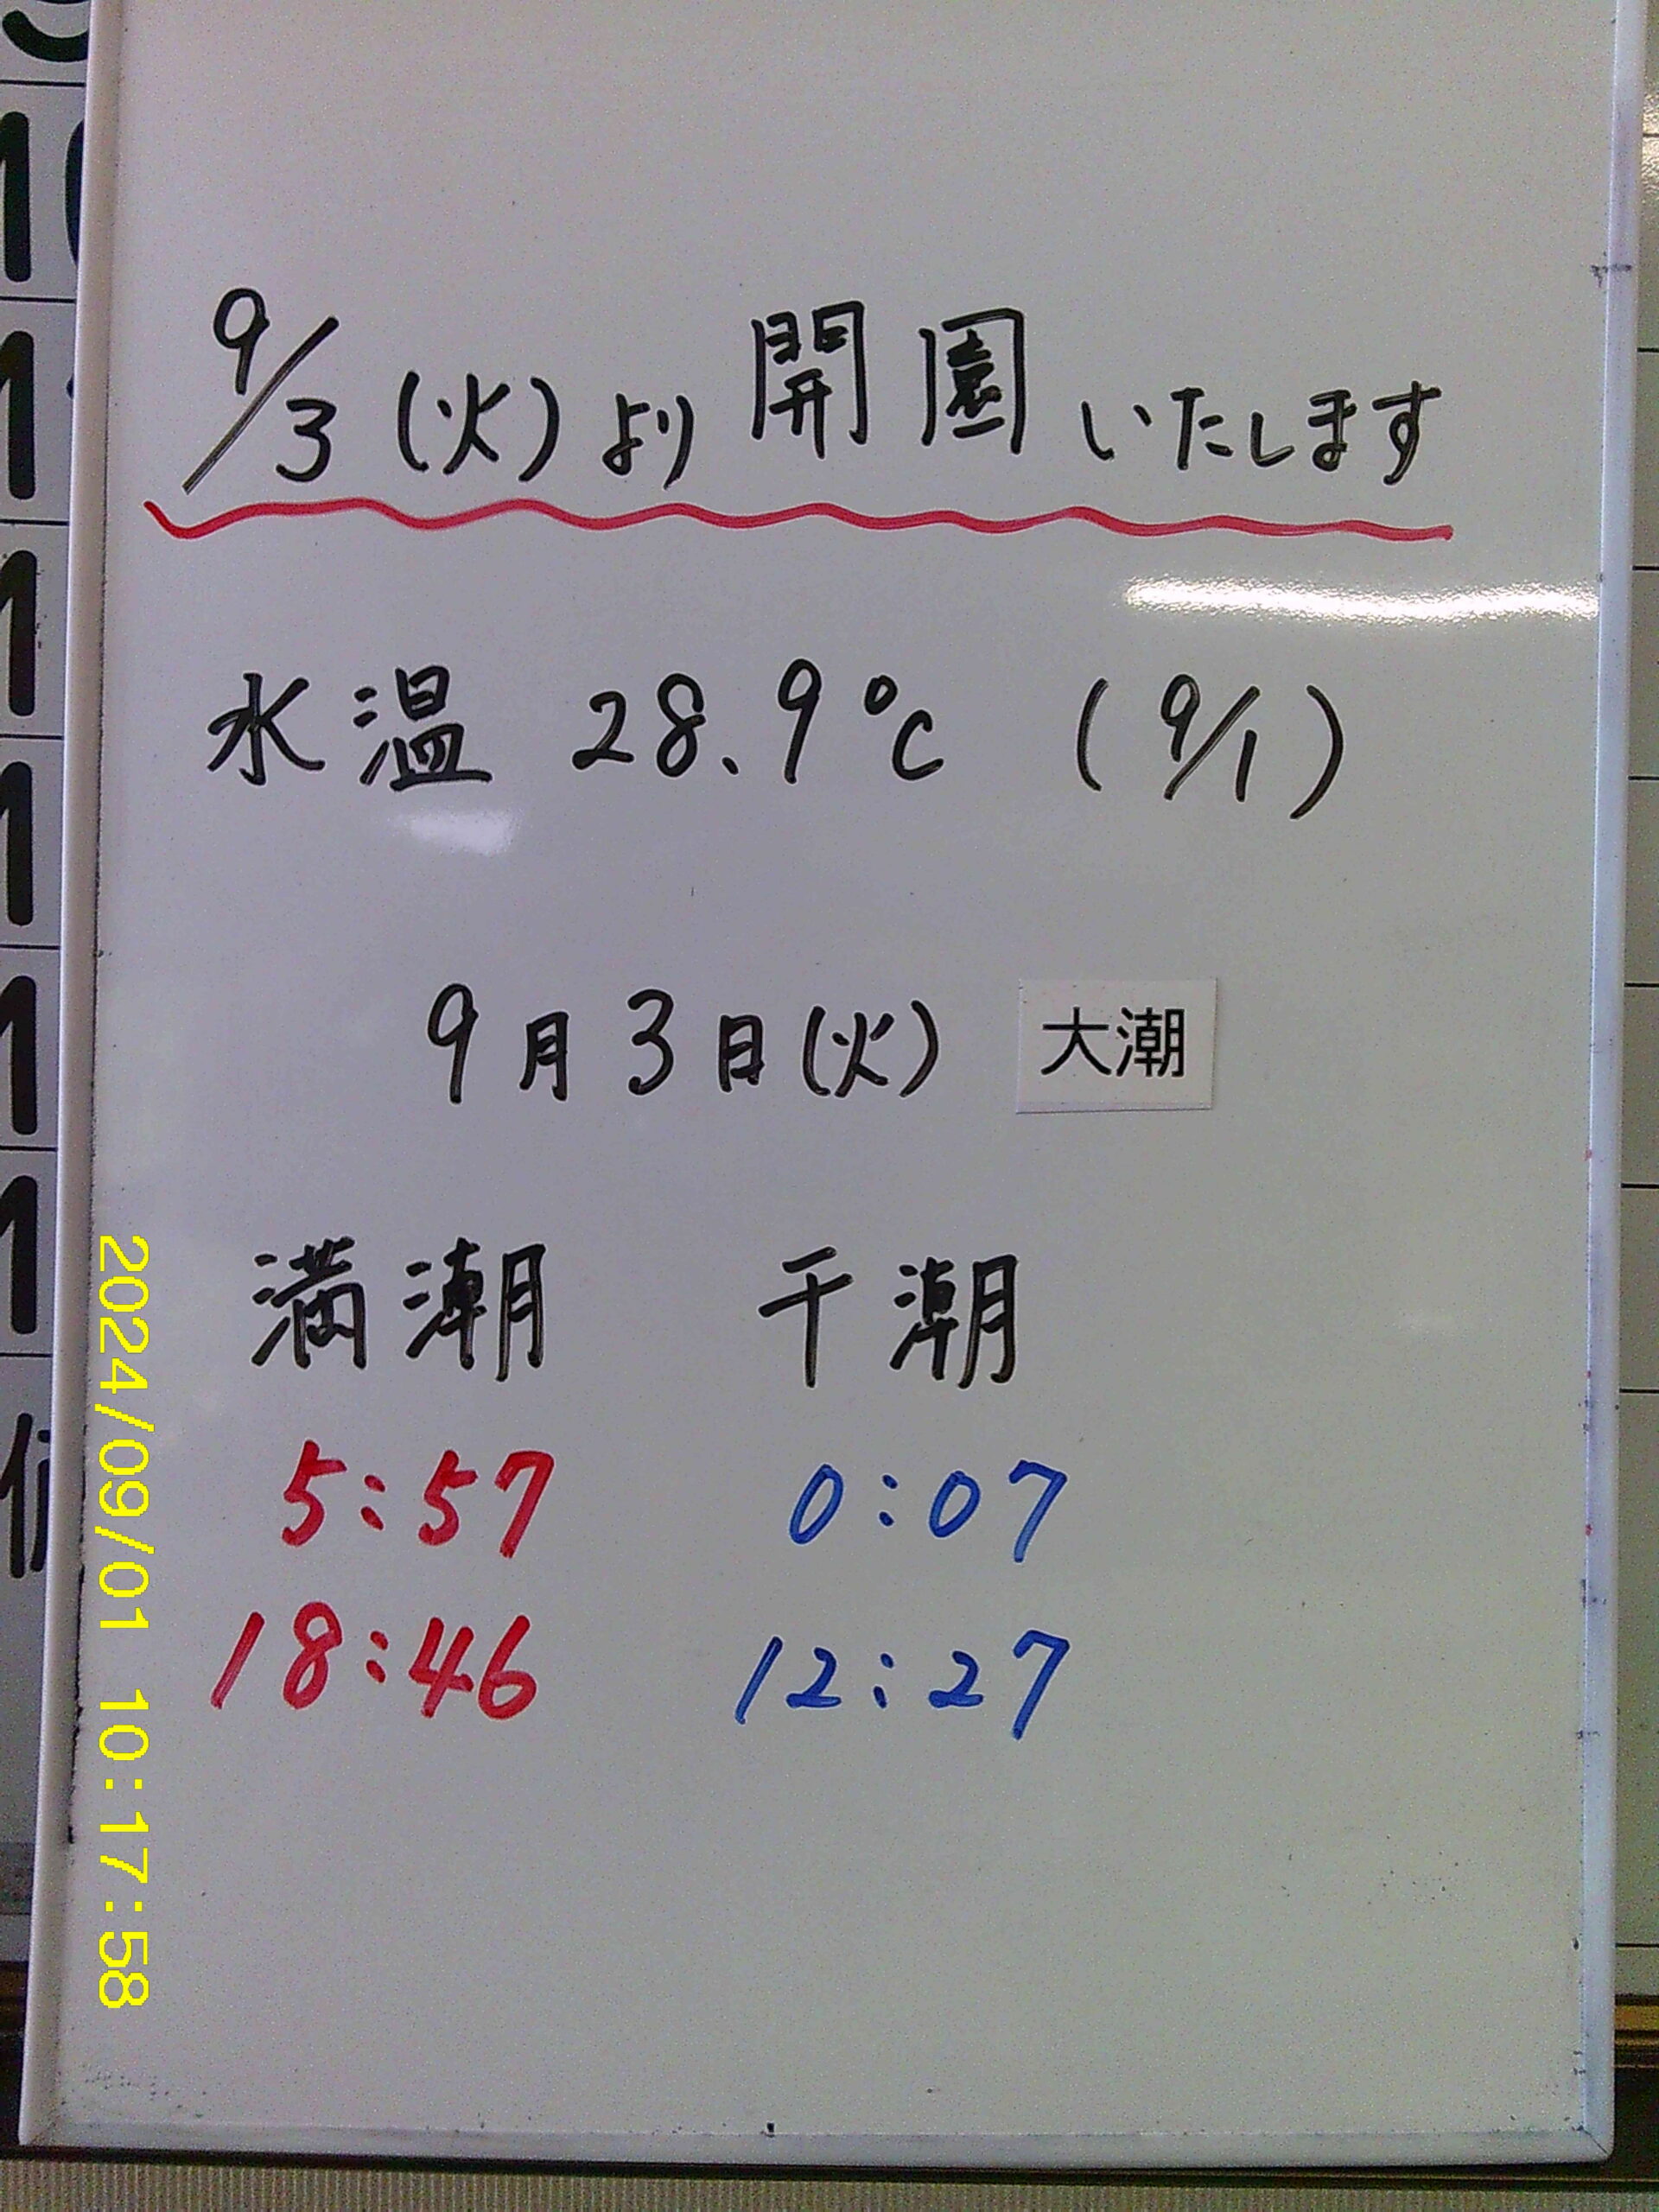 9/3(火)より開園いたします
水温 28.9℃ (9/1)
9月3日(火) 大潮
満潮 干潮
5:57 0:07
18:46 12:27
2024/09/01 10:17:58